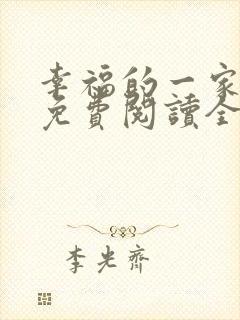 幸福的一家
免費閱讀全
李光齊